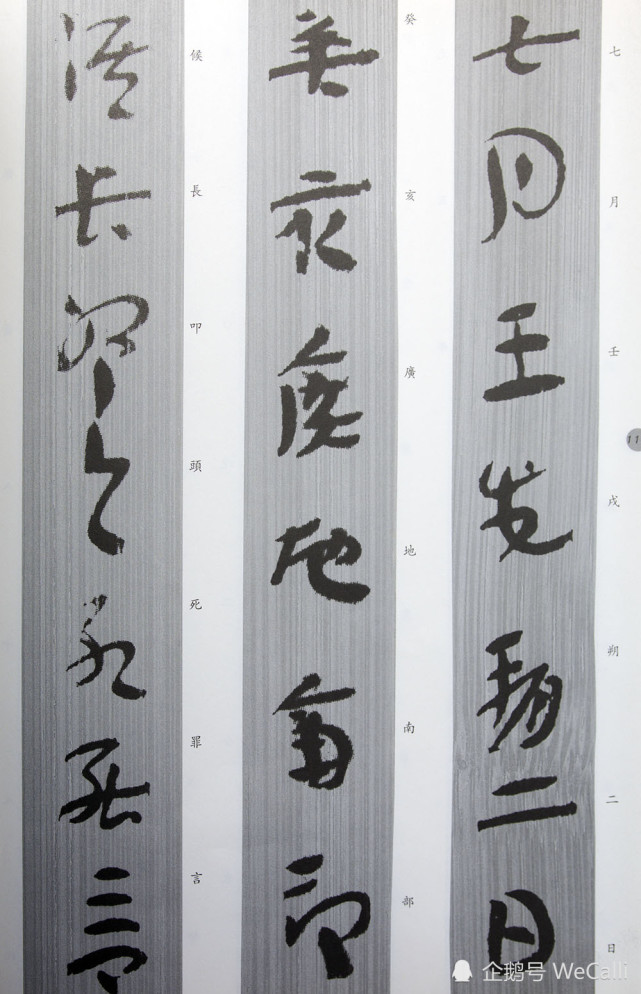 七月壬戌朔二日
癸亥廣地南部
候長叩頭死罪言
七月壬戌朔二日
癸亥廣地南部
候長叩頭死罪言
11
企鹅号 WeCalli